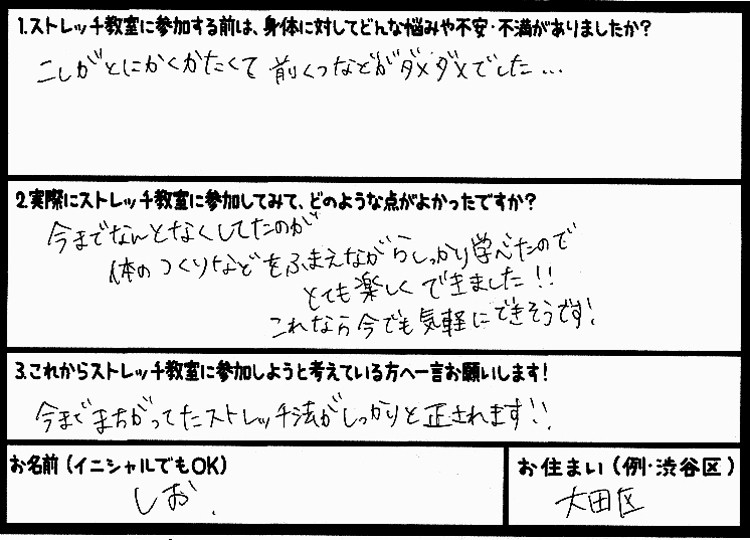 1.ストレッチ教室に参加する前は、身体に対してどんな悩みや不安・不満がありましたか?
こしがとにかくかたくて 前くつなどがダメダメでした…
2.実際にストレッチ教室に参加してみて、どのような点がよかったですか?
今までなんとなくしてたのが
体のつくりなどをふまえながらしっかり学べたので
とても楽しくできました!!
これなら今でも気軽にできそうです!
3.これからストレッチ教室に参加しようと考えている方へ一言お願いします!
今までまちがってたストレッチ法がしっかりと正されます!!
お名前(イニシャルでもOK)
しお.
お住まい(例・渋谷区)
大田区